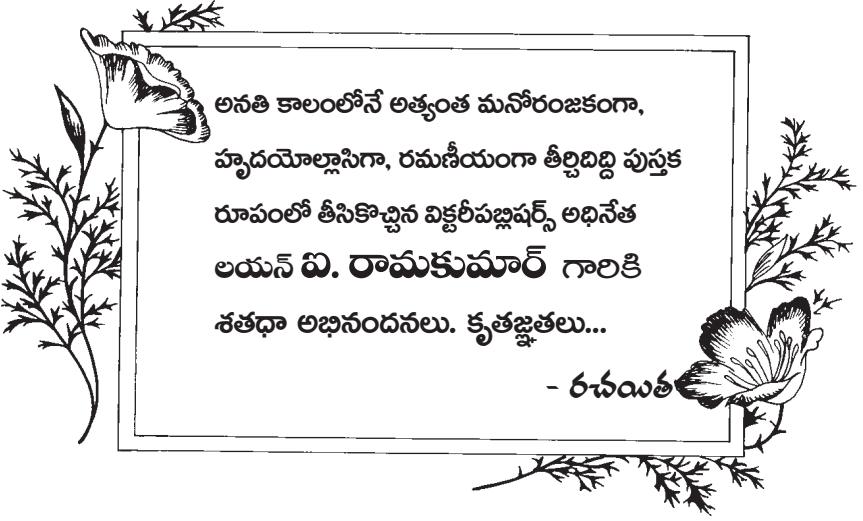 అనతి కాలంలోనే అత్యంత మనోరంజకంగా,
హృదయోల్లాసిగా, రమణీయంగా తీర్చిదిద్ది పుస్తక
రూపంలో తీసికొచ్చిన విక్టరీపబ్లిషర్స్ అధినేత
లయన్ ఐ. రామకుమార్ గారికి
శతధా అభినందనలు. కృతజ్ఞతలు...
- రచయిత